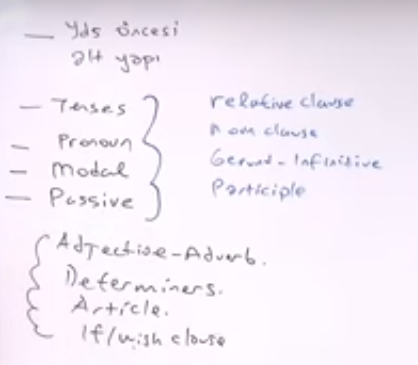 — Yds öncesi
alt yapı
— Tenses
— Pronoun
— Modal
— Passive
relative clause
nom clause
Gerund - Infinitive
Participle
Adjective - Adverb.
Determiners.
Article.
If/wish clause